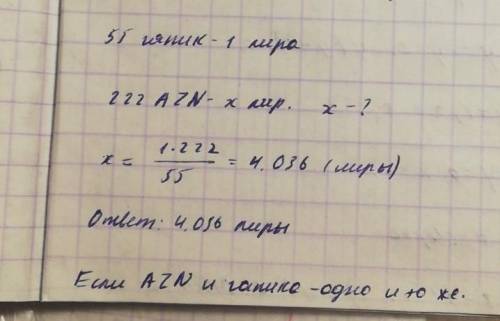 55 гяпик - 1 лира
222 AZN - x лир. x - ?
x = 1·222 / 55 = 4.036 (лиры)
Ответ: 4.036 лиры
Если AZN и гапика - одно и то же.